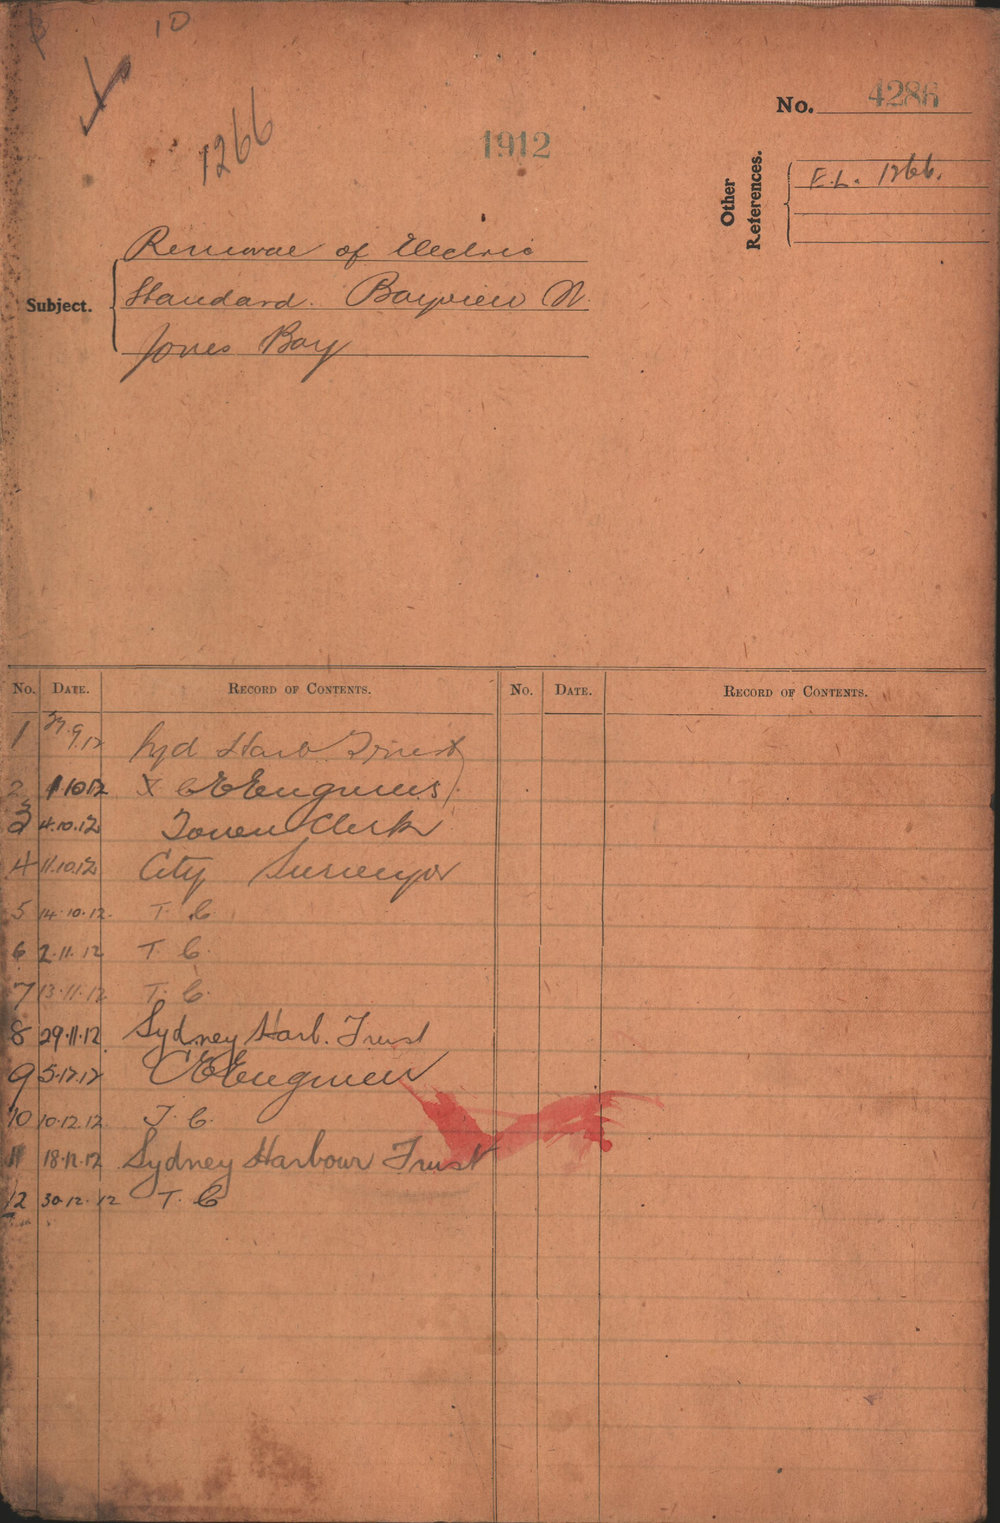 10
1266
1912
No. 4286
Other References.
E.L. 1266.
Subject.
Removal of Electric
Standard. Bayview St.
Jones Bay
No. Date. Record of Contents. No. Date. Record of Contents.
1 27.9.12 Syd Harb Trust
2 1 10 12 CEEngineers
3 4.10.12 Town Clerk
4 11.10.12 City Surveyor
5 14.10.12. T. C
6 2.11.12 T. C.
7 13.11.12 T. C.
8 29.11.12 Sydney Harb. Trust
9 5.12.12 CEEngineer
10 10.12.12 T. C.
11 18.12.12 Sydney Harbour Trust
12 30.12.12 T. C